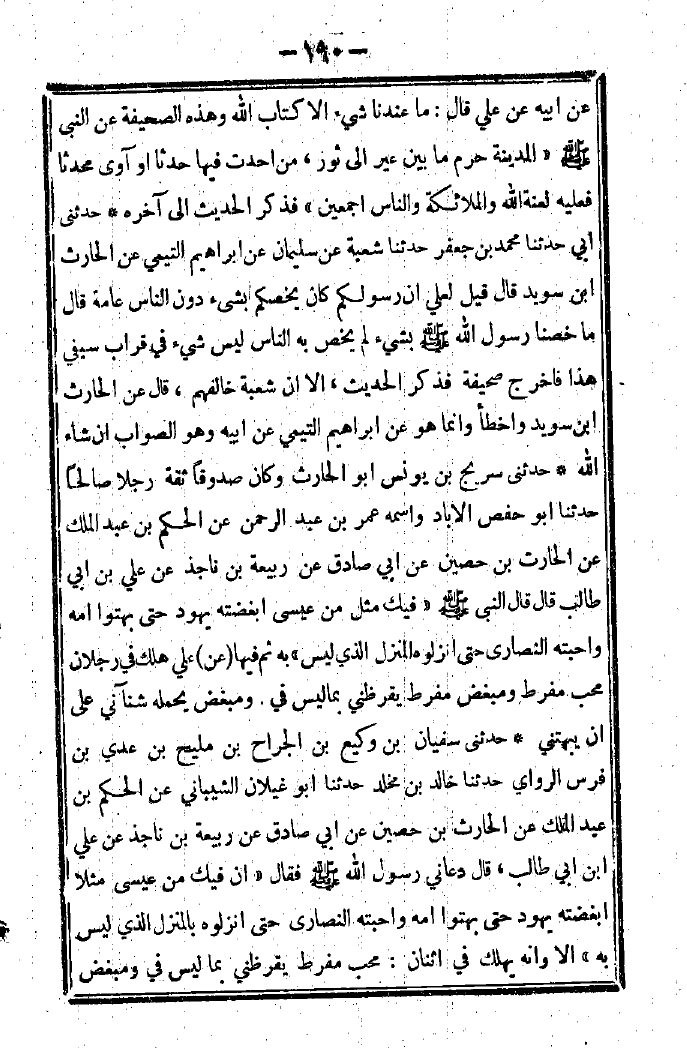 — ١٩٠ —
عن ابيه عن علي قال : ما عندنا شيء الا كتاب الله وهذه الصحيفة عن النبي
ﷺ « المدينة حرم ما بين عير الى ثور ، من احدث فيها حدثا او آوى محدثا
فعليه لعنة الله والملائكة والناس اجمعين » فذكر الحديث الى آخره * حدثني
ابي حدثنا محمد بن جعفر حدثنا شعبة عن سليمان عن ابراهيم التيمي عن الحارث
ابن سويد قال قيل لعلي ان رسولكم كان يخصكم بشيء دون الناس عامة قال
ما خصنا رسول الله ﷺ بشيء لم يخص به الناس ليس شيء في قراب سيفي
هذا فاخرج صحيفة فذكر الحديث ، الا ان شعبة خالفهم ، قال عن الحارث
ابن سويد واخطأ وانما هو عن ابراهيم التيمي عن ابيه وهو الصواب ان شاء
الله * حدثنى سريج بن يونس ابو الحارث وكان صدوقاً ثقة رجلا صالحاً
حدثنا ابو حفص الابار واسمه عمر بن عبد الرحمن عن الحكم بن عبد الملك
عن الحارث بن حصين عن ابي صادق عن ربيعة بن ناجذ عن علي بن ابي
طالب قال قال النبي ﷺ « فيك مثل من عيسى ابغضته يهود حتى بهتوا امه
واحبته النصارى حتى انزلوه المنزل الذي ليس » به ثم فيها (عن) علي هلك في رجلان
محب مفرط ومبغض مفرط يقرظني بما ليس في . ومبغض يحمله شنآني على
ان يبهتني * حدثنى سفيان بن وكيع بن الجراح بن مليح بن عدي بن
فرس الرواي حدثنا خالد بن مخلد حدثنا ابو غيلان الشيباني عن الحكم بن
عبد الملك عن الحارث بن حصين عن ابي صادق عن ربيعة بن ناجذ عن علي
ابن ابي طالب ، قال دعاني رسول الله ﷺ فقال « ان فيك من عيسى مثلا
ابغضته يهود حتى بهتوا امه واحبته النصارى حتى انزلوه بالمنزل الذي ليس
به » الا وانه يهلك في اثنان : محب مفرط يقرظني بما ليس في ومبغض